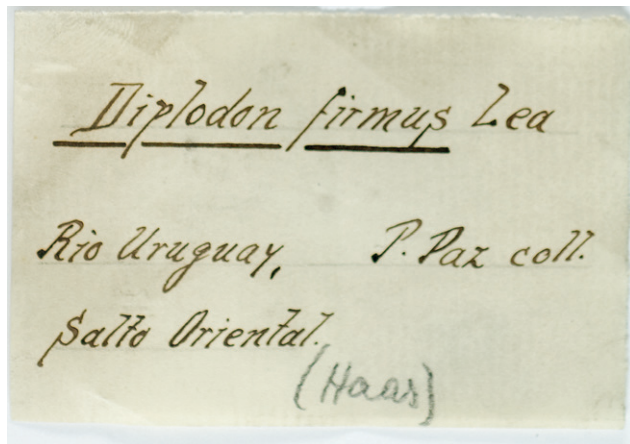 Diplodon firmus Lea
Rio Uruguay, P. Paz coll.
Salto Oriental.
(Haas)